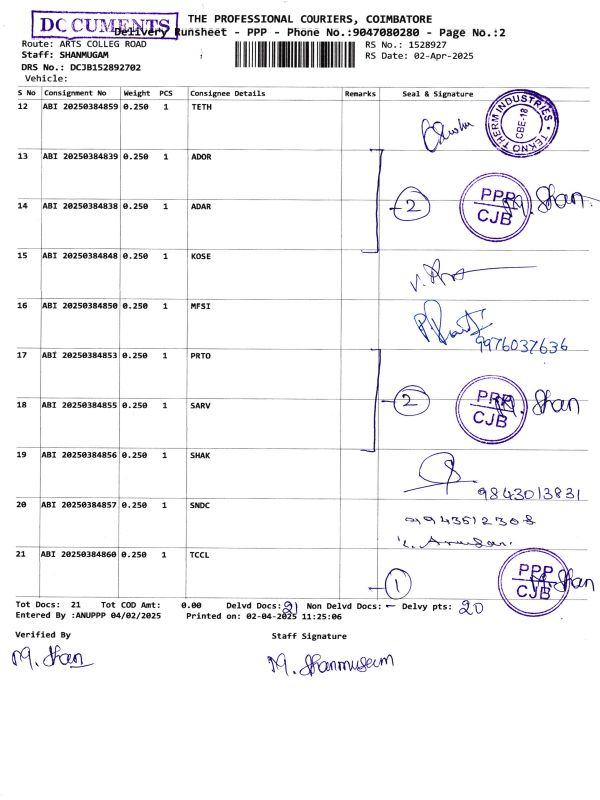 DOCUMENTS
THE PROFESSIONAL COURIERS, COIMBATORE
Delivery Runsheet - PPP - Phone No.:9047080280 - Page No.:2
Route: ARTS COLLEG ROAD RS No.: 1528927
Staff: SHANMUGAM RS Date: 02-Apr-2025
DRS No.: DCJB152892702
Vehicle:
S No Consignment No Weight PCS Consignee Details Remarks Seal & Signature
12 ABI 20250384859 0.250 1 TETH
TEKNO THERM INDUSTRIES CBE-18
13 ABI 20250384839 0.250 1 ADOR
2 PPP CJB M. Shan
14 ABI 20250384838 0.250 1 ADAR
15 ABI 20250384848 0.250 1 KOSE
16 ABI 20250384850 0.250 1 MFSI
9976037636
17 ABI 20250384853 0.250 1 PRTO
2 PPP CJB M. Shan
18 ABI 20250384855 0.250 1 SARV
19 ABI 20250384856 0.250 1 SHAK
9843013831
20 ABI 20250384857 0.250 1 SNDC
9943512308
21 ABI 20250384860 0.250 1 TCCL
1 PPP CJB M. Shan
Tot Docs: 21 Tot COD Amt: 0.00 Delvd Docs: 21 Non Delvd Docs: - Delvy pts: 20
Entered By :ANUPPP 04/02/2025 Printed on: 02-04-2025 11:25:06
Verified By Staff Signature
M. Shan M. Shanmugam